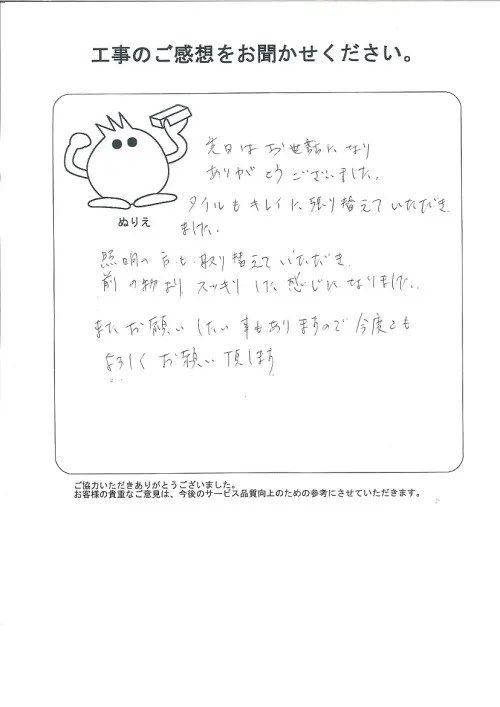 工事のご感想をお聞かせください。
ぬりえ
先日はお世話になり
ありがとうございました。
タイルもキレイに張り替えていただき
ました。
照明の方も取り替えていただき
前の物よりスッキリした感じになりました。
またお願いしたい事もありますので今度とも
よろしくお願い頂します
ご協力いただきありがとうございました。
お客様の貴重なご意見は、今後のサービス品質向上のための参考にさせていただきます。